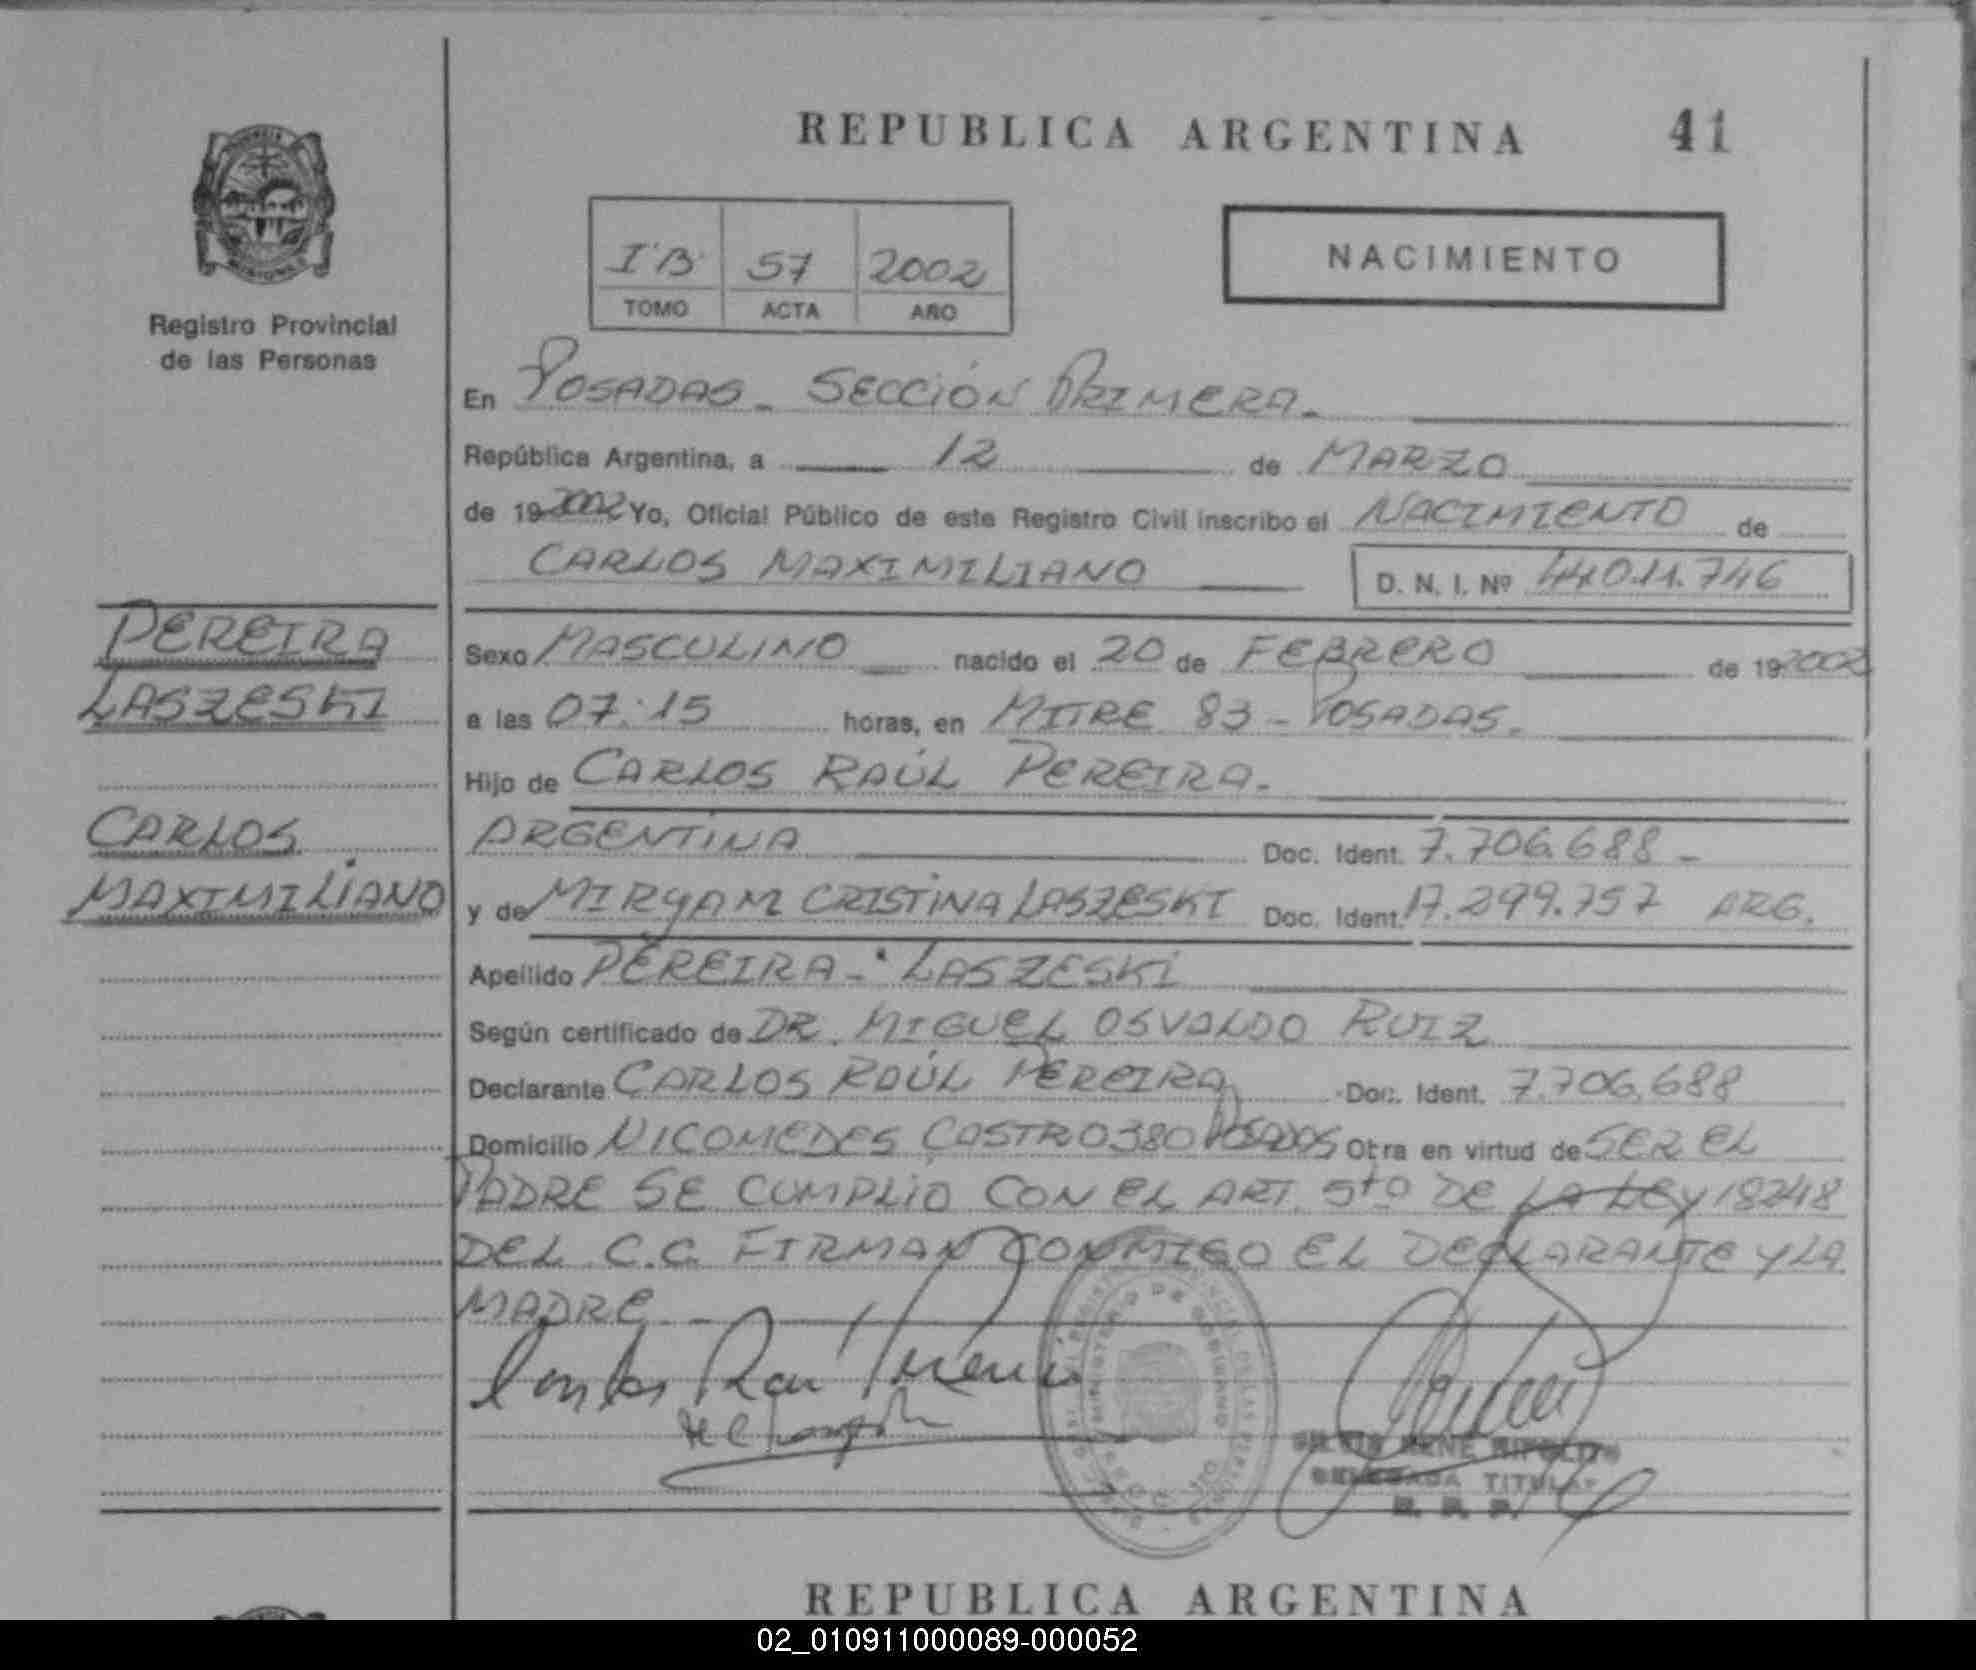 REPUBLICA ARGENTINA
41
Registro Provincial
de las Personas
I B
57
2002
TOMO
ACTA
AÑO
NACIMIENTO
En POSADAS - SECCIÓN PRIMERA.
República Argentina, a 12 de MARZO
de 19 2002 Yo, Oficial Público de este Registro Civil inscribo el NACIMIENTO de
CARLOS MAXIMILIANO
D. N. I. Nº 44.011.746
PEREIRA
LASZESKI
CARLOS
MAXIMILIANO
Sexo MASCULINO nacido el 20 de FEBRERO de 19 2002
a las 07:15 horas, en MITRE 83 - POSADAS.
Hijo de CARLOS RAÚL PEREIRA.
ARGENTINA Doc. Ident. 7.706.688 -
y de MIRYAM CRISTINA LASZESKI Doc. Ident. 17.299.757 ARG.
Apellido PEREIRA - LASZESKI
Según certificado de DR. MIGUEL OSVALDO RUIZ
Declarante CARLOS RAÚL PEREIRA Doc. Ident. 7.706.688
Domicilio NICOMEDES CASTRO 380 POSADAS Otra en virtud de SER EL
PADRE SE CUMPLIO CON EL ART. 5to DE LA LEY 18248
DEL C.C. FIRMAN CONMIGO EL DECLARANTE Y LA
MADRE
MINISTERIO DE GOBIERNO
TITULAR
REPUBLICA ARGENTINA
02_010911000089-000052